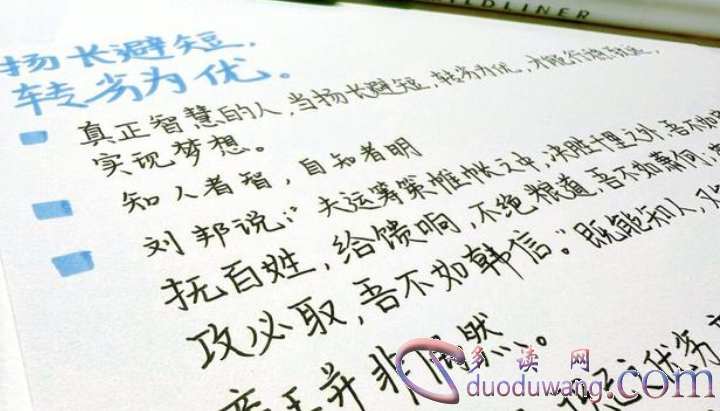 ILDLINER
扬长避短，
转劣为优。
真正智慧的人，当扬长避短，转劣为优，才能行稳致远，
实现梦想。
知人者智，自知者明
刘邦说：“夫运筹策帷帐之中，决胜千里之外，吾不如
抚百姓，给馈响，不绝粮道，吾不如萧何，
攻必取，吾不如韩信。”既能知人，又
并非偶然。
优劣
多读网
duoduwang.com